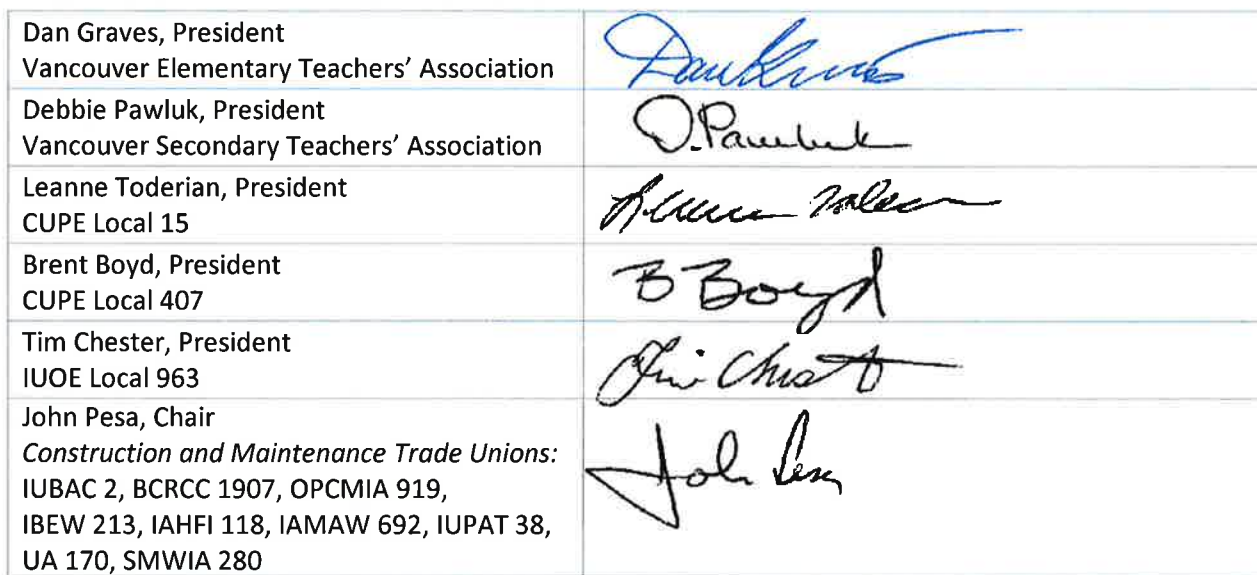 Dan Graves, President
Vancouver Elementary Teachers’ Association
Debbie Pawluk, President
Vancouver Secondary Teachers’ Association
D. Pawluk
Leanne Toderian, President
CUPE Local 15
Brent Boyd, President
CUPE Local 407
B Boyd
Tim Chester, President
IUOE Local 963
John Pesa, Chair
Construction and Maintenance Trade Unions:
IUBAC 2, BCRCC 1907, OPCMIA 919,
IBEW 213, IAHFI 118, IAMAW 692, IUPAT 38,
UA 170, SMWIA 280
John Pesa